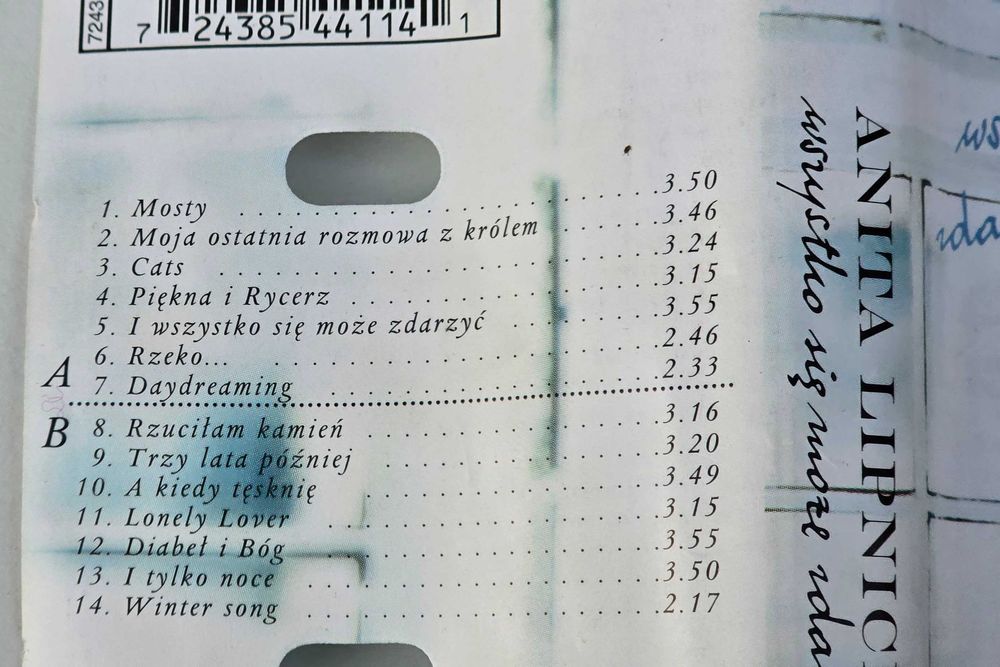 7243
7 24385 44114 1
1. Mosty 3.50
2. Moja ostatnia rozmowa z królem 3.46
3. Cats 3.24
4. Piękna i Rycerz 3.15
5. I wszystko się może zdarzyć 3.55
6. Rzeko... 2.46
A 7. Daydreaming 2.33
B 8. Rzuciłam kamień 3.16
9. Trzy lata później 3.20
10. A kiedy tęsknię 3.49
11. Lonely Lover 3.15
12. Diabeł i Bóg 3.55
13. I tylko noce 3.50
14. Winter song 2.17
ANITA LIPNIC
wszystko się może zda
ws
zda